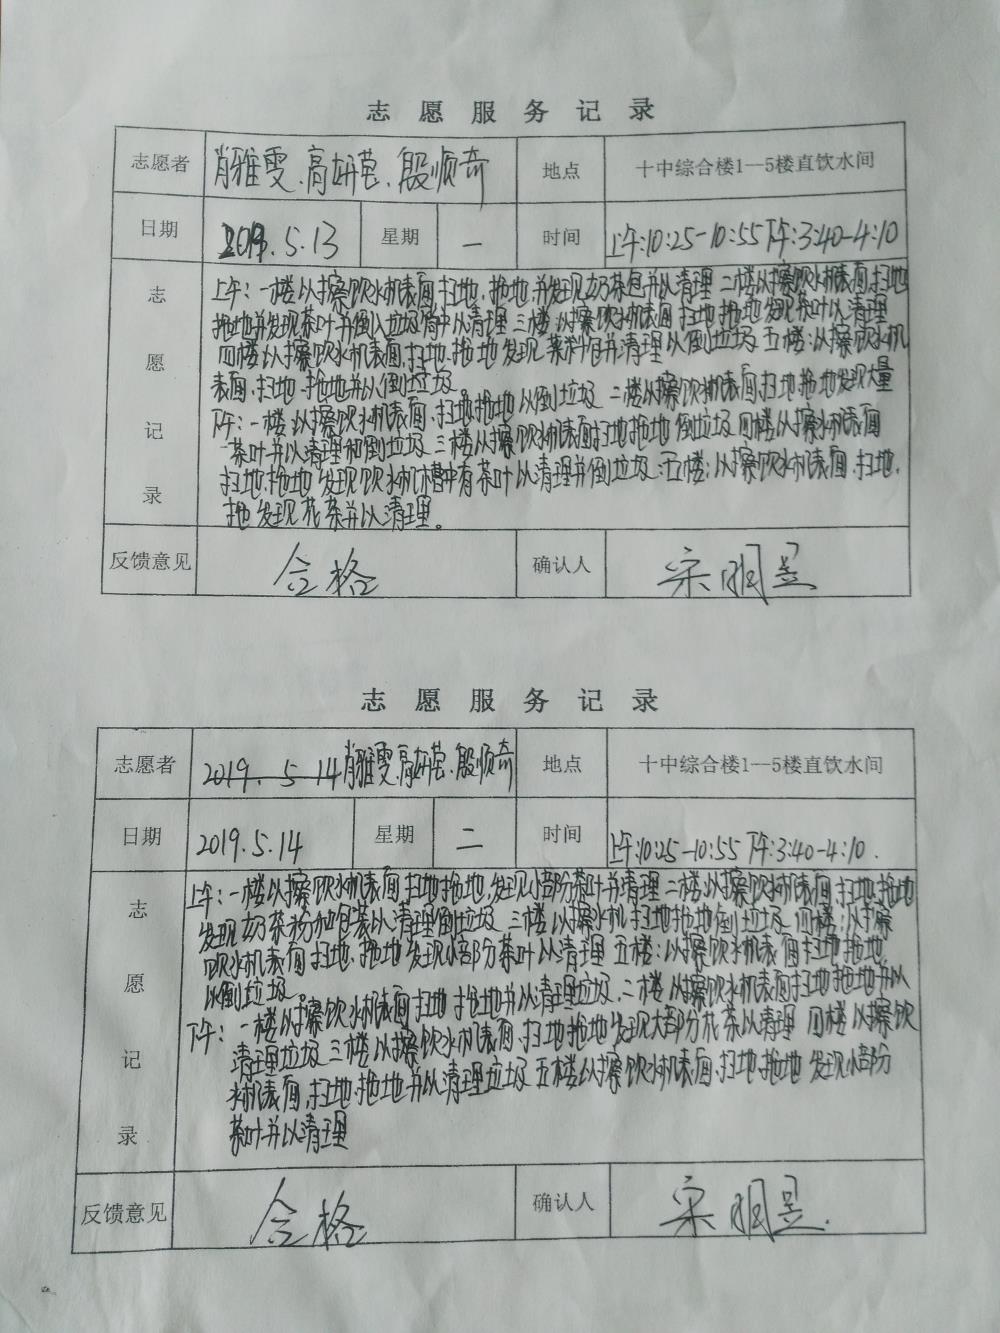 志愿服务记录
志愿者 肖雅雯、高妍莒、殷顺奇 地点 十中综合楼1—5楼直饮水间
日期 2019.5.13 星期 一 时间 上午:10:25-10:55下午:3:40-4:10
志愿记录
上午：一楼以擦饮水机表面、扫地、拖地,并发现奶茶包并以清理 二楼以擦饮水机表面、扫地
拖地并发现茶叶并倒入垃圾筒中以清理 三楼：以擦饮水机表面 扫地 拖地 发现茶叶以清理
四楼：以擦饮水机表面、扫地、拖地 发现 茶料包并清理以倒垃圾 五楼：以擦饮水机
表面、扫地、拖地并以倒垃圾
下午：一楼以擦饮水机表面、扫地拖地以倒垃圾 二楼以擦饮水机表面、扫地拖地发现大量
茶叶并以清理和倒垃圾 三楼以擦饮水机表面扫地拖地 倒垃圾 四楼以擦水机表面
扫地、拖地 发现饮水机槽中有茶叶以清理并倒垃圾、五楼：以擦饮水机表面、扫地、
拖 发现花茶并以清理。
反馈意见 合格 确认人 宋明昱
志愿服务记录
志愿者 2019. 5 14 肖雅雯、高妍莒、殷顺奇 地点 十中综合楼1--5楼直饮水间
日期 2019.5.14 星期 二 时间 上午:10:25-10:55 下午:3:40-4:10.
志愿记录
上午：一楼以擦饮水机表面、扫地拖地,发现小部份茶叶并清理 二楼以擦饮水机表面、扫地、拖地
发现奶茶粉加包装以清理倒垃圾 三楼以擦水机 扫地拖地倒垃圾 四楼：以擦
饮水机表面、扫地、拖地 发现小部分茶叶以清理 五楼：以擦饮水机表面扫地、拖地、
以倒垃圾。
下午：一楼以擦饮水机表面扫地 拖地并以清理垃圾、二楼以擦饮水机表面扫地拖地并以
清理垃圾 三楼以擦饮水机表面、扫地拖地发现大部分花茶以清理 四楼以擦饮
水机表面、扫地、拖地并以清理垃圾 五楼以擦饮水机表面、扫地、拖地 发现小部分
茶叶并以清理
反馈意见 合格 确认人 宋明昱.